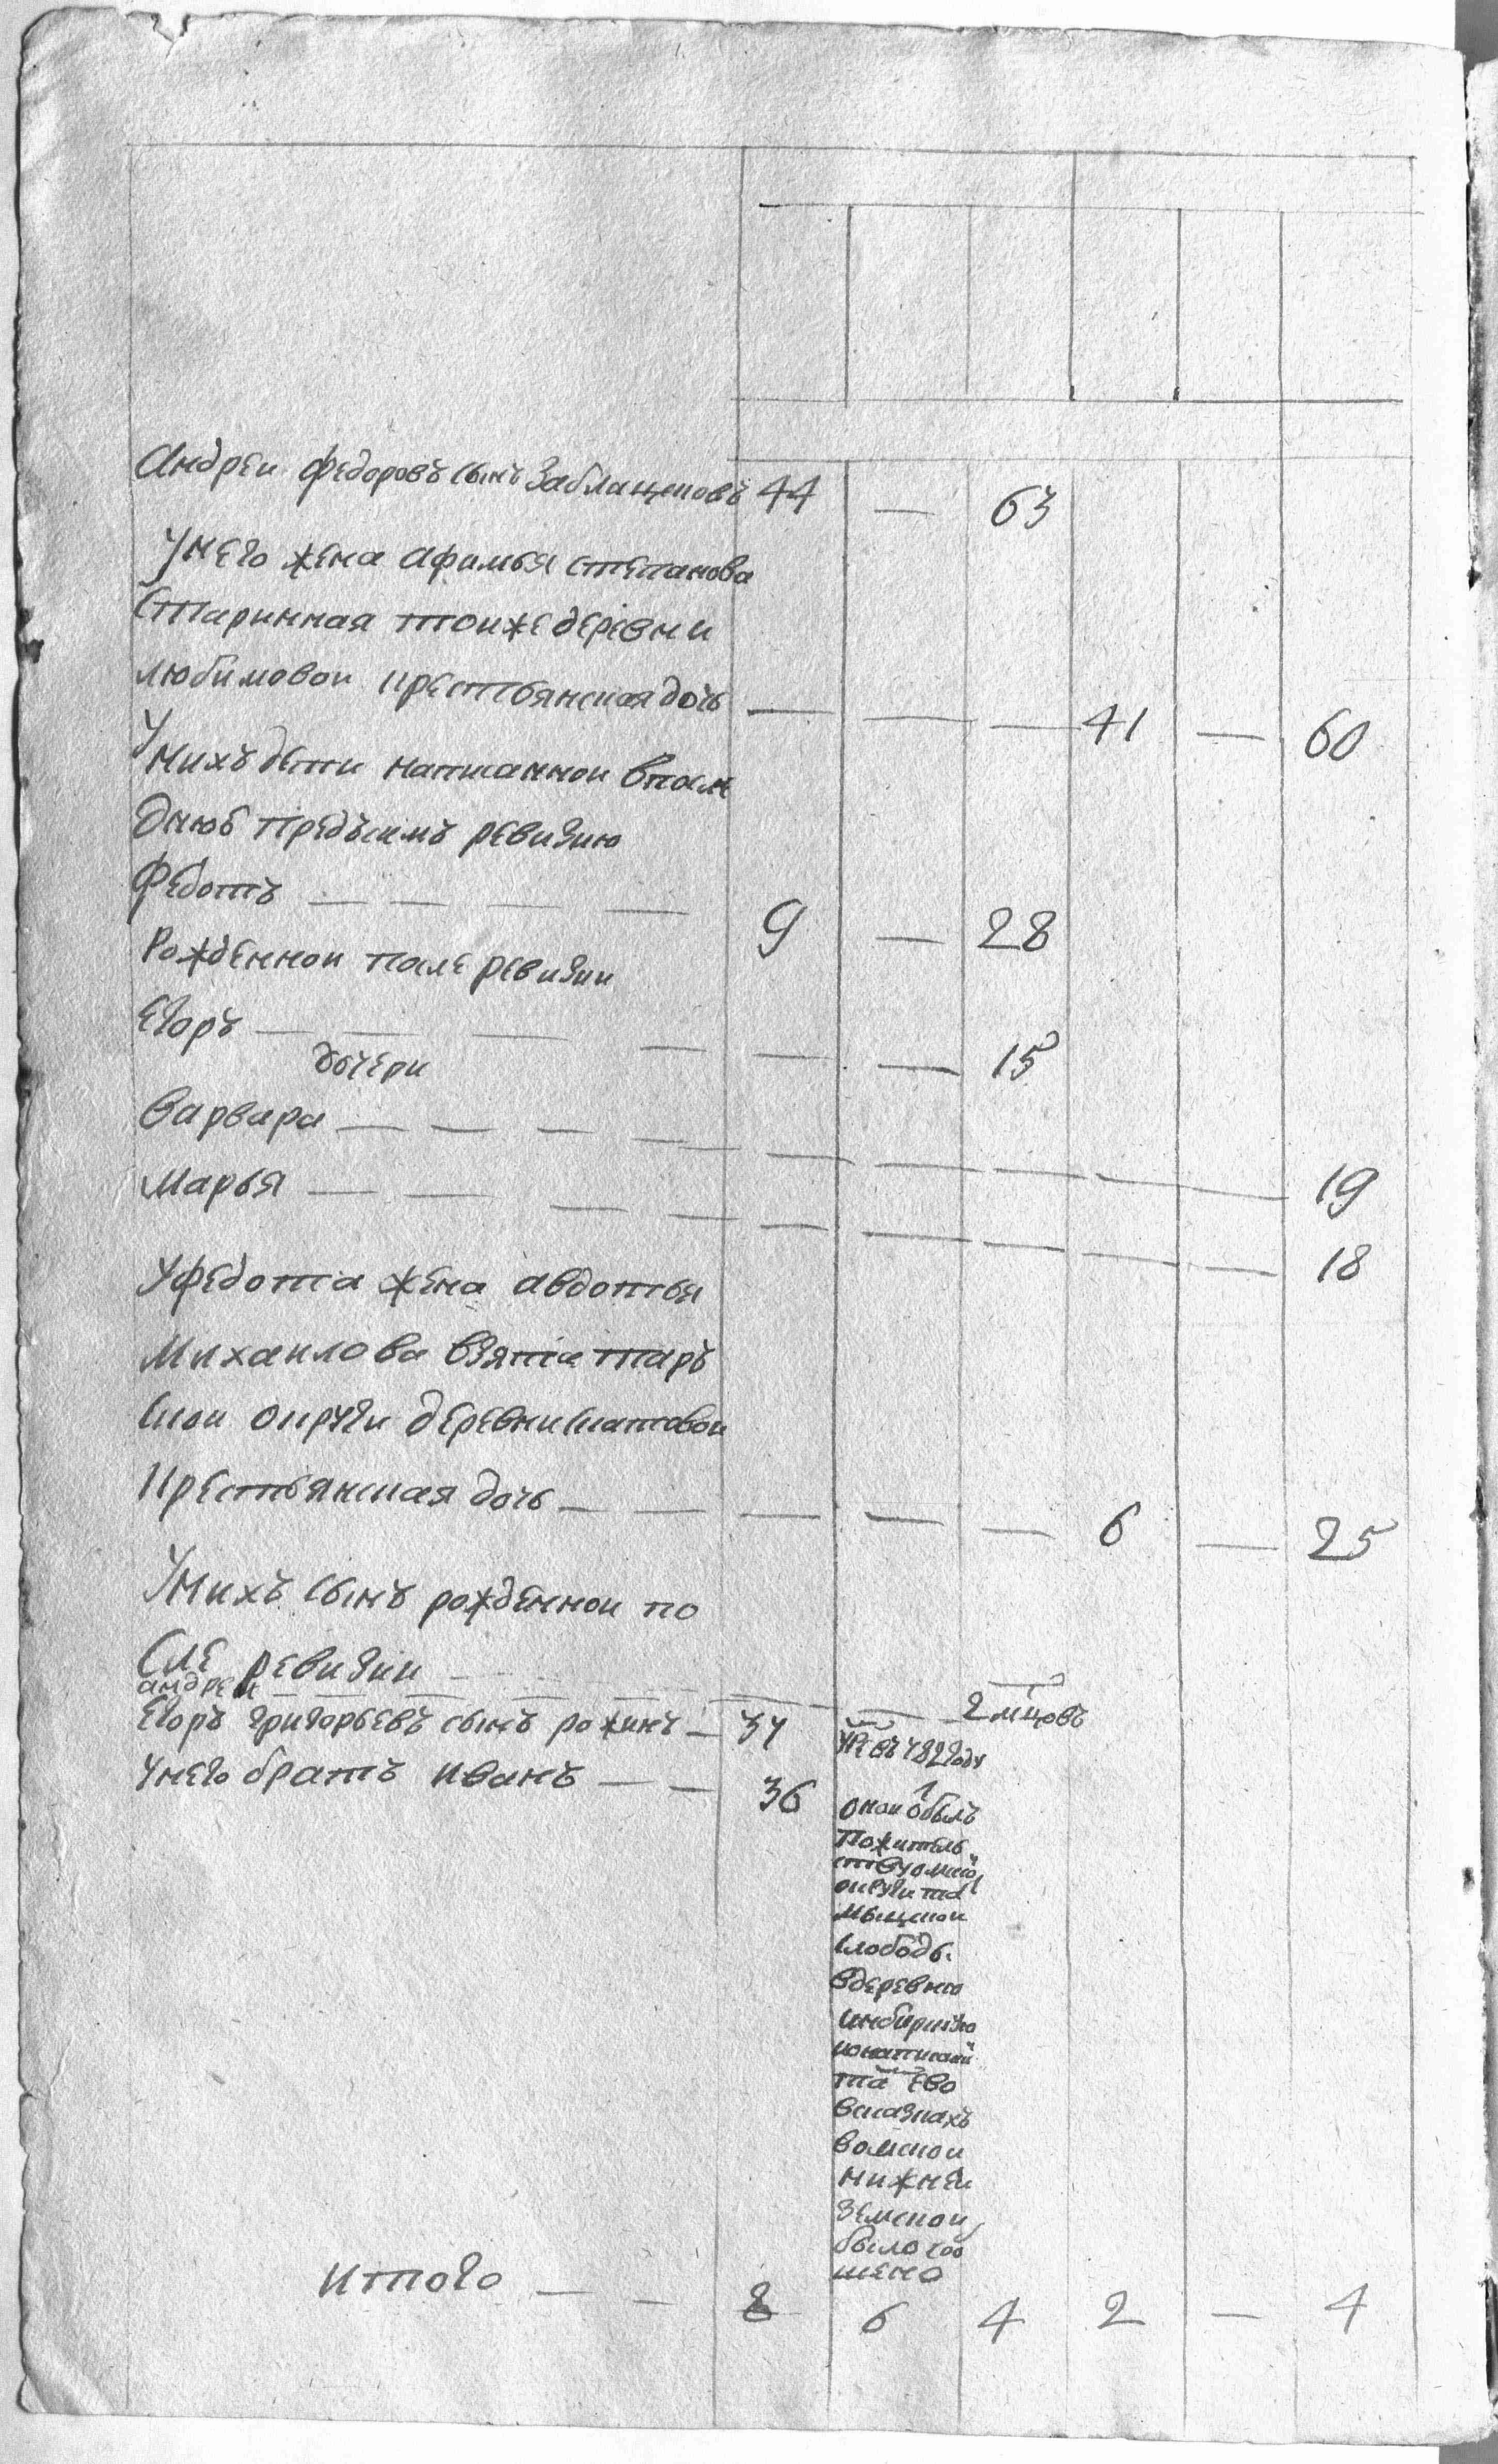 Андреи Федоровъ сынъ Заблацковъ 44 — 63
Унего жена афимья степанова
Старинная тоиже деревни
любимовои крестьянская дочь — — — 41 — 60
Унихъ дети написаннои впосле
днюю предъсимъ ревизию
Федотъ — — — — 9 — 28
Рожденнои после ревизии
Егоръ — — — — — — 15
дочери
варвара — — — — 19
Марья — — — — 18
Уфедота жена авдотья
Михаилова взята таръ
скои округи деревни
крестьянская дочь — — — — — 6 — 25
Унихъ сынъ рожденнои по
сле ревизии
андреи — — — — — 2 мцовъ
Егоръ григорьевъ сынъ рожинъ — 34 782 году
Унего братъ иванъ — — 36
онои
округи
слободы
вдеревню
ево
всказкахъ
вомскои
нижнеи
земскои
было со
шено
итого — — 8 6 4 2 — 4